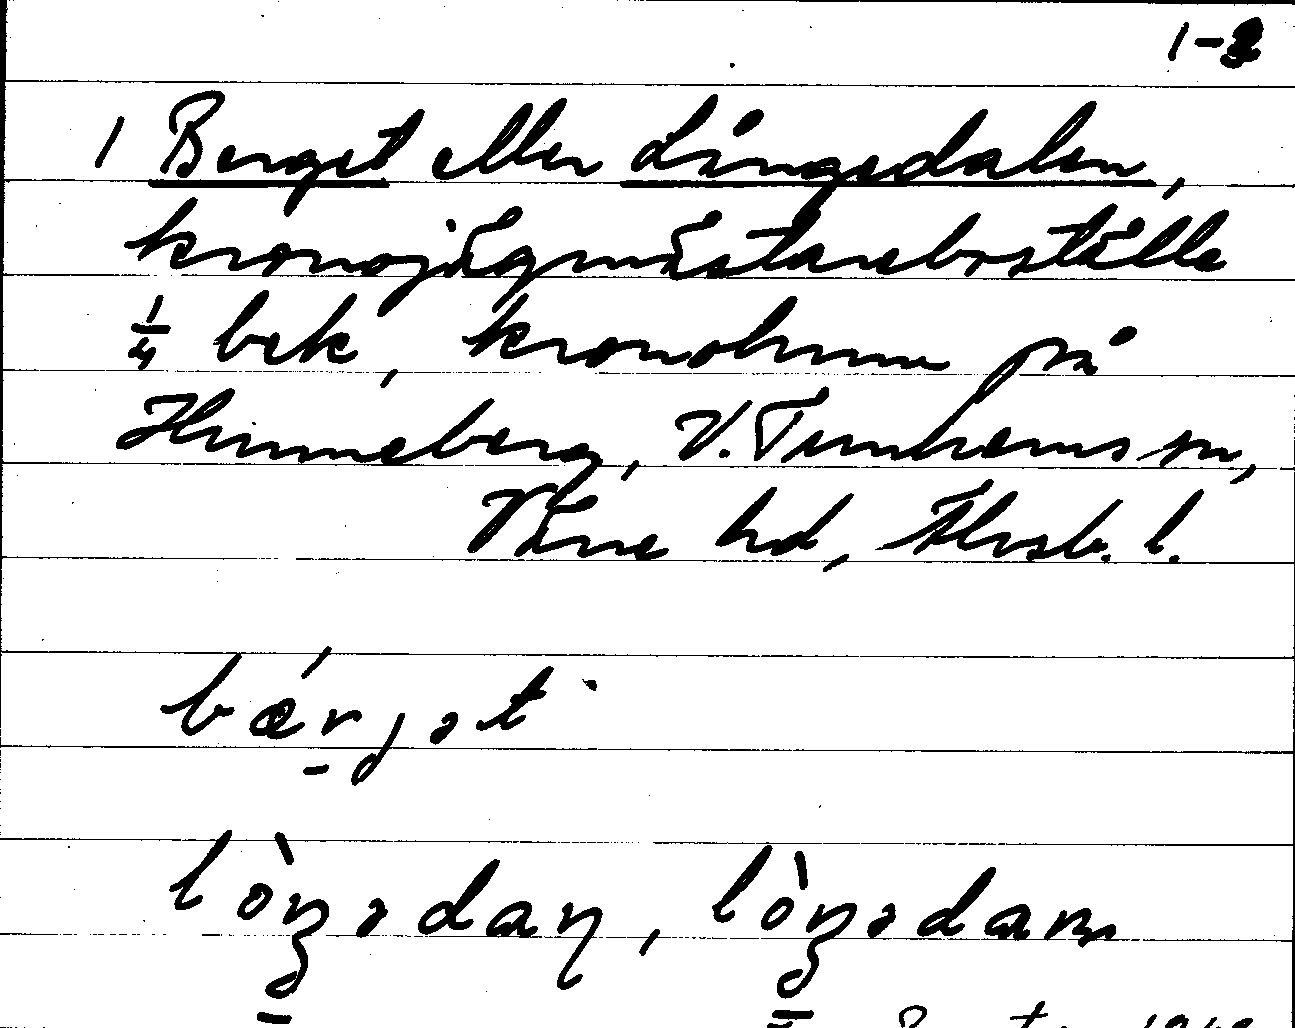 1-2
1 Berget eller Långedalen,
kronojägmästareboställe
1/4 bek, kronohem på
Hunneberg, V. Tunhems sn,
Väne hd, Älvsb. l.
bǽrjət
lòŋədaɳ, lòŋədam